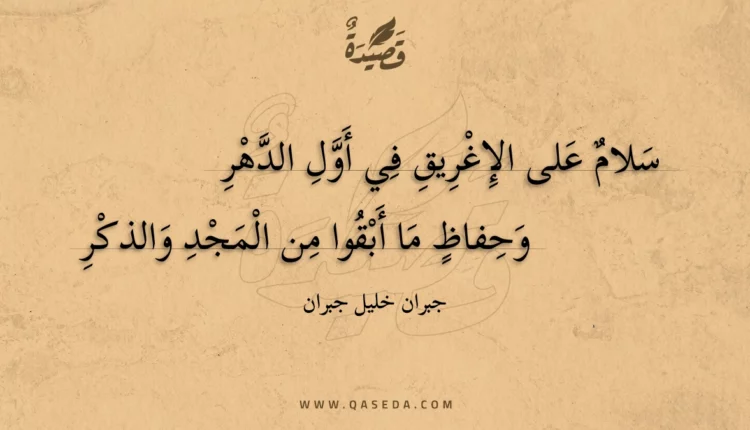 قَصِيْدَةٌ
سَلامٌ عَلى الإِغْرِيقِ فِي أَوَّلِ الدَّهْرِ
وَحِفاظٍ مَا أَبْقُوا مِن الْمَجْدِ وَالذكْرِ
جبران خليل جبران
WWW.QASEDA.COM